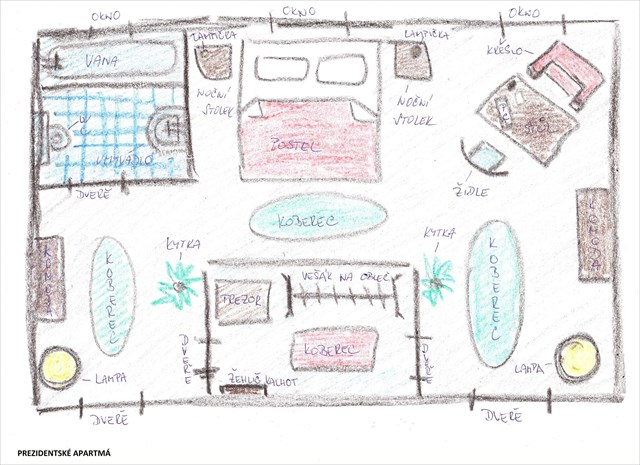 OKNO
OKNO
OKNO
LAMPIČKA
LAMPIČKA
KŘESLO
VANA
NOČNÍ
STOLEK
NOČNÍ
STOLEK
PC
STŮL
WC
UMYVADLO
POSTEL
ŽIDLE
DVEŘE
KOBEREC
KOMODA
KYTKA
KYTKA
KOMODA
KOBEREC
KOBEREC
VEŠÁK NA OBLEČ.
TREZOR
KOBEREC
DVEŘE
DVEŘE
LAMPA
ŽEHLIČ KALHOT
LAMPA
DVEŘE
DVEŘE
PREZIDENTSKÉ APARTMÁ